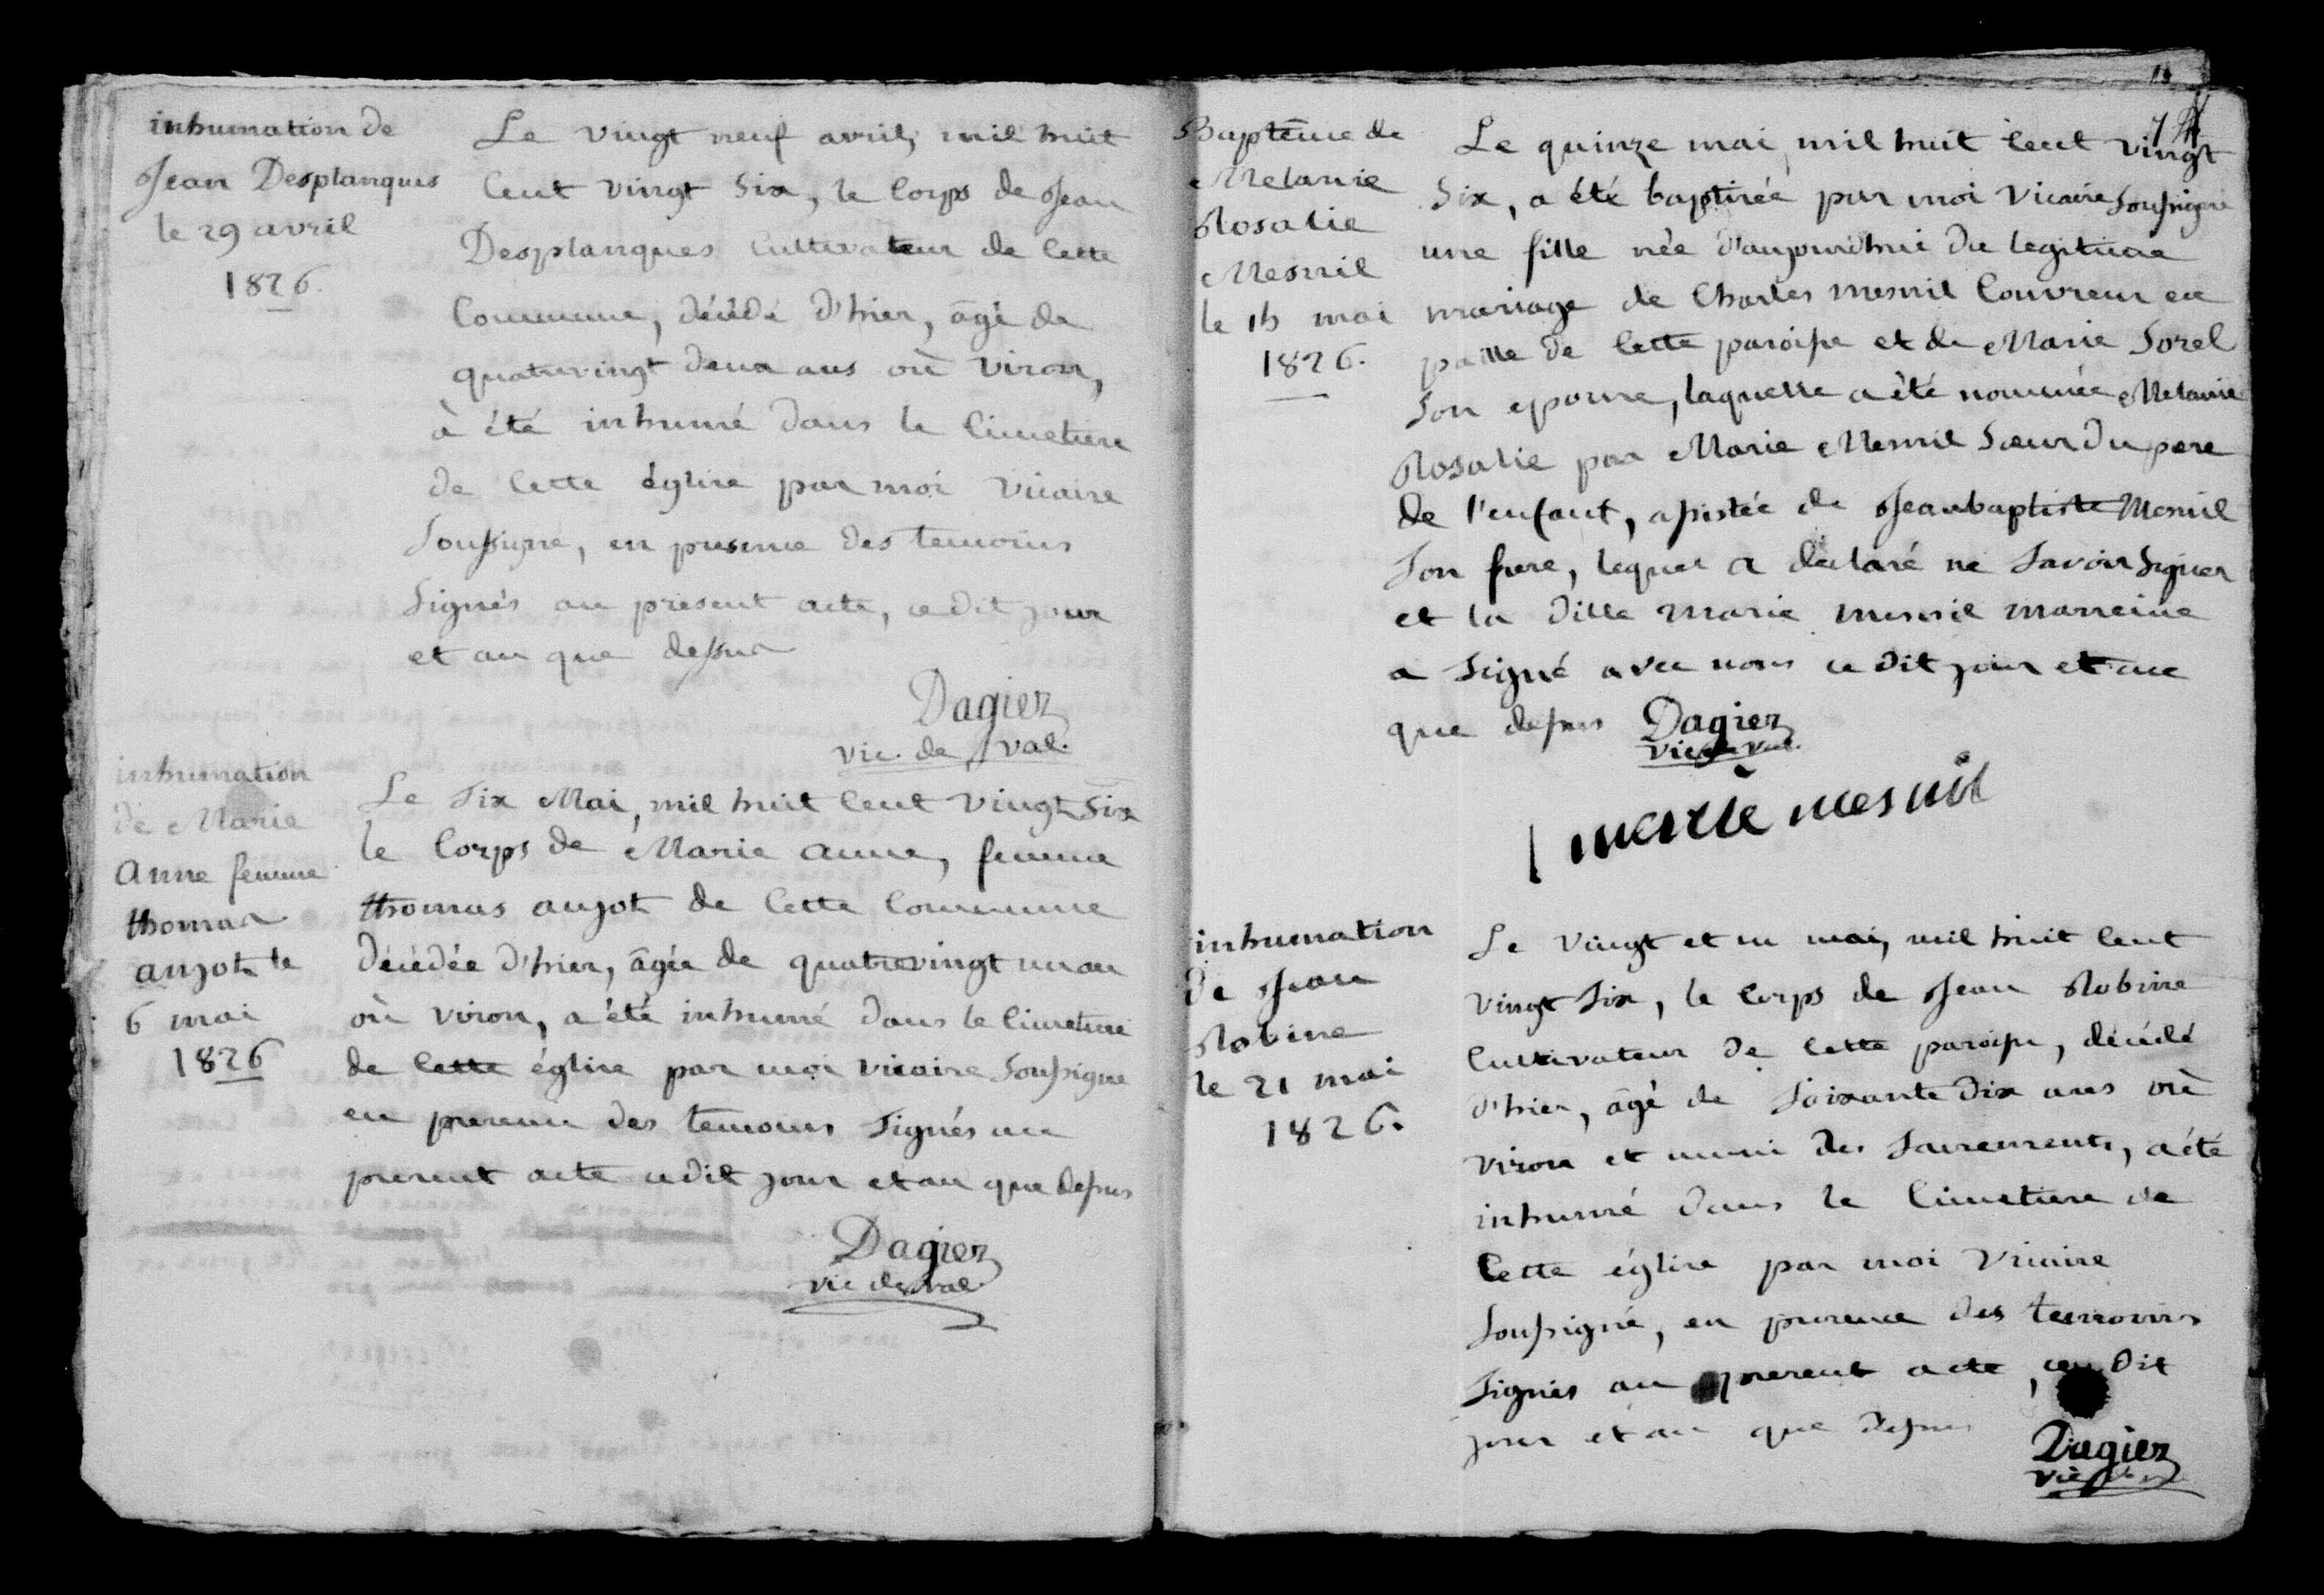 inhumation de
Jean Desplanques
le 29 avril
1826.
Le vingt neuf avril, mil huit
Cent vingt Six, le Corps de Jean
Desplanques Cultivateur de Cette
Commune, décédé d'hier, âgé de
quatrevingt deux ans où viron,
à été inhumé dans le Cimetiere
de Cette église par moi Vicaire
Soussigné, en presence des temoins
Signés au présent acte, cedit jour
et an que dessus
Dagiez
vic. de val.
inhumation
de Marie
Anne femme
thomas
anjot le
6 mai
1826
Le Six Mai, mil huit Cent Vingt Six
le Corps de Marie anne, femme
thomas anjot de Cette Commune
décédée d'hier, âgée de quatrevingt un an
où viron, a été inhumé dans le Cimetiere
de Cette église par moi vicaire Soussigné
en presence des temoins Signés au
present acte cedit jour et an que dessus
Dagiez
vic de val
Baptême de
Melanie
Rosalie
Mesnil
le 15 mai
1826.
Le quinze mai mil huit Cent vingt
Six, a été baptisée par moi Vicaire Soussigné
une fille née d'aujourdhui du legitime
mariage de Charles mesnil Couvreur en
paille de Cette paroisse et de Marie Sorel
Son epouse, laquelle a été nommée Melanie
Rosalie par Marie Mesnil Sœur du pere
de l'enfant, assistée de Jeanbaptiste Mesnil
Son frere, lequel a declaré ne Savoir Signer
et la ditte marie mesnil marreine
a Signé avec nous ce dit jour et an
que dessus Dagiez
vic de val.
marie mesnil
inhumation
de Jean
Robine
le 21 mai
1826.
Le Vingt et un mai, mil huit Cent
Vingt Six, le Corps de Jean Robine
Cultivateur de Cette paroisse, décédé
d'hier, âgé de Soixante Dix ans où
viron et muni des Sacrements, a été
inhumé dans le Cimetiere de
Cette église par moi Vicaire
Soussigné, en presence des temoins
Signés au present acte, ce dit
jour et an que dessus
Dagiez